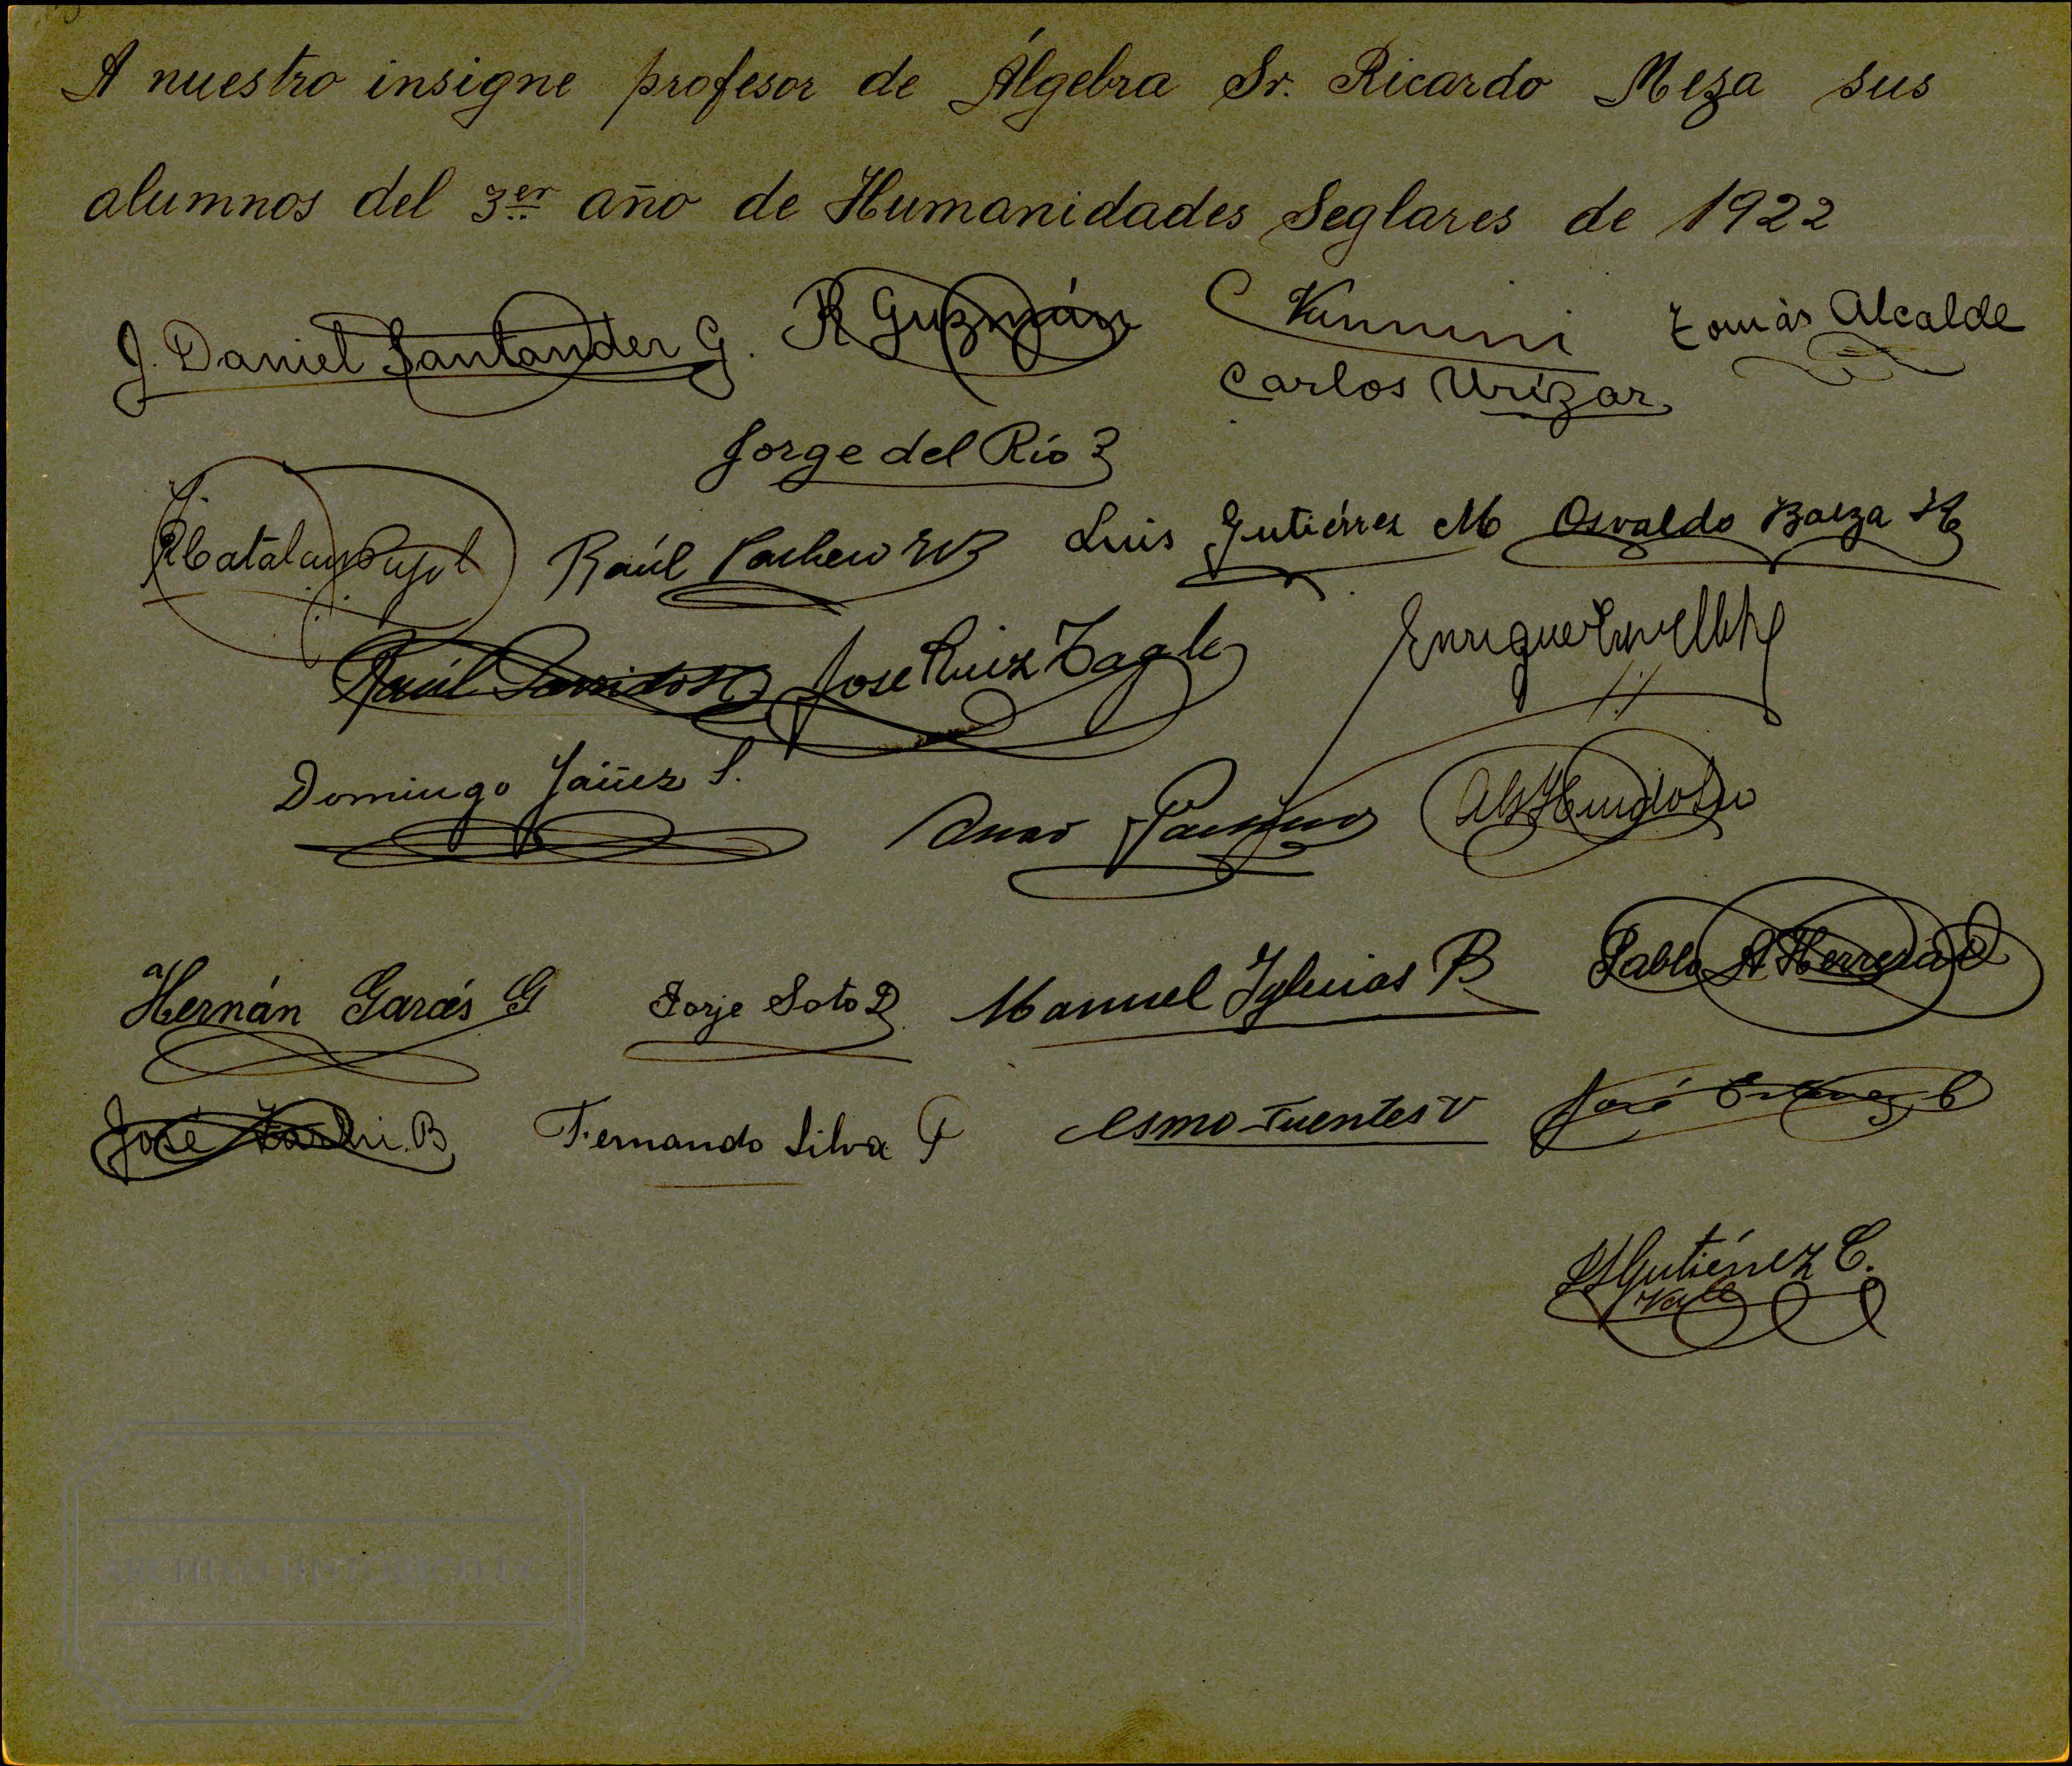 A nuestro insigne profesor de Álgebra Sr. Ricardo Meza sus
alumnos del 3er año de Humanidades Seglares de 1922
J. Daniel Santander G. R Guzmán C Vannini Tomás Alcalde
Carlos Urízar
Jorge del Río Z
R Catalan Pujol Raúl Pacheco Luis Gutiérrez M Osvaldo Baeza
Raúl José Ruiz Tagle Enrique
Domingo Jáñez S.
Hernán Garcés G Jorje Soto D Manuel Iglesias B Pablo A Herrera
José B. Fernando Silva F Osmo Fuentes V José C
Gutiérrez C.
ARCHIVO HISTORICO